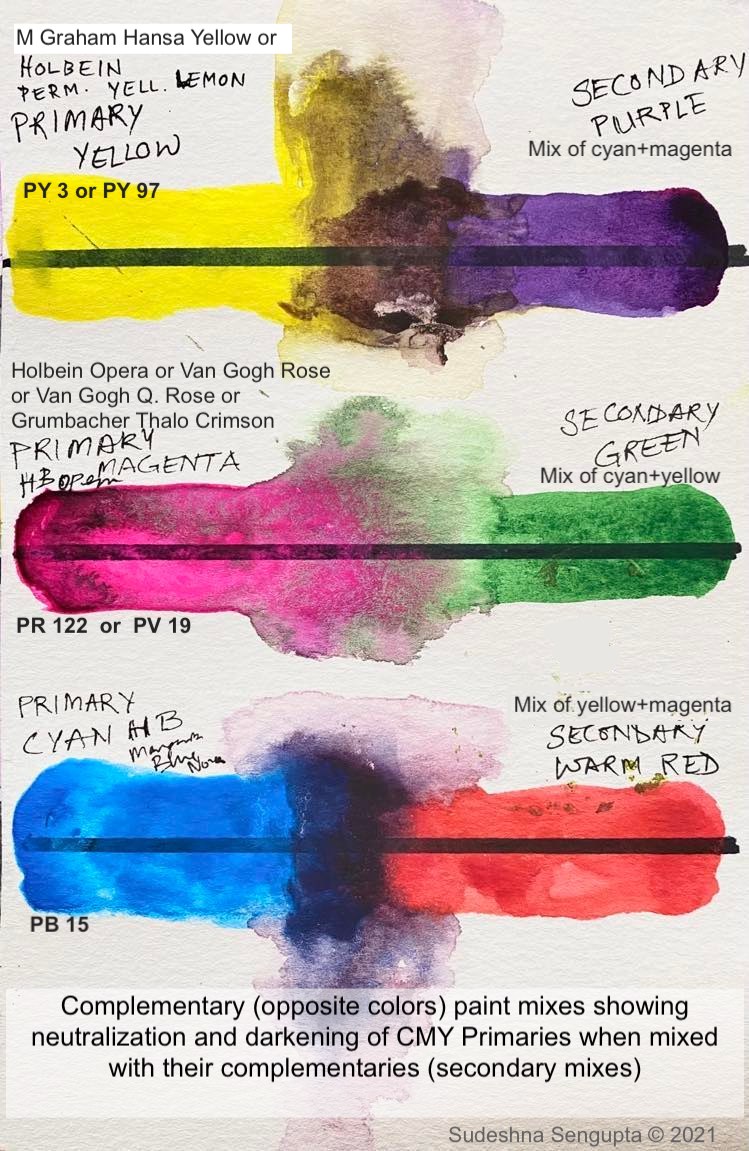 M Graham Hansa Yellow or
HOLBEIN
PERM. YELL. LEMON
PRIMARY
YELLOW
PY 3 or PY 97
SECONDARY
PURPLE
Mix of cyan+magenta
Holbein Opera or Van Gogh Rose
or Van Gogh Q. Rose or
Grumbacher Thalo Crimson
PRIMARY
MAGENTA
HB Opera
PR 122 or PV 19
SECONDARY
GREEN
Mix of cyan+yellow
PRIMARY
CYAN HB
Blue Nova
PB 15
Mix of yellow+magenta
SECONDARY
WARM RED
Complementary (opposite colors) paint mixes showing
neutralization and darkening of CMY Primaries when mixed
with their complementaries (secondary mixes)
Sudeshna Sengupta © 2021